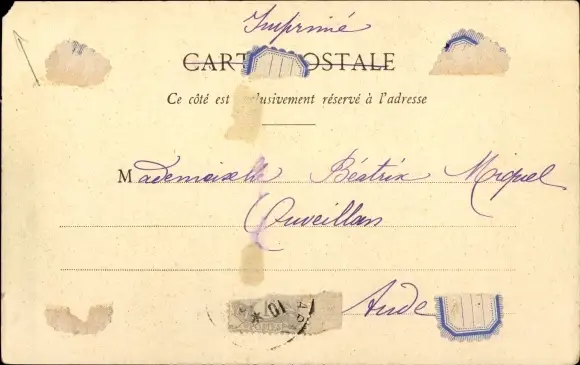 Imprimé
CARTE POSTALE
Ce côté est exclusivement réservé à l'adresse
Mademoiselle Béatrix Miquel
Ouveillan
Aude
01